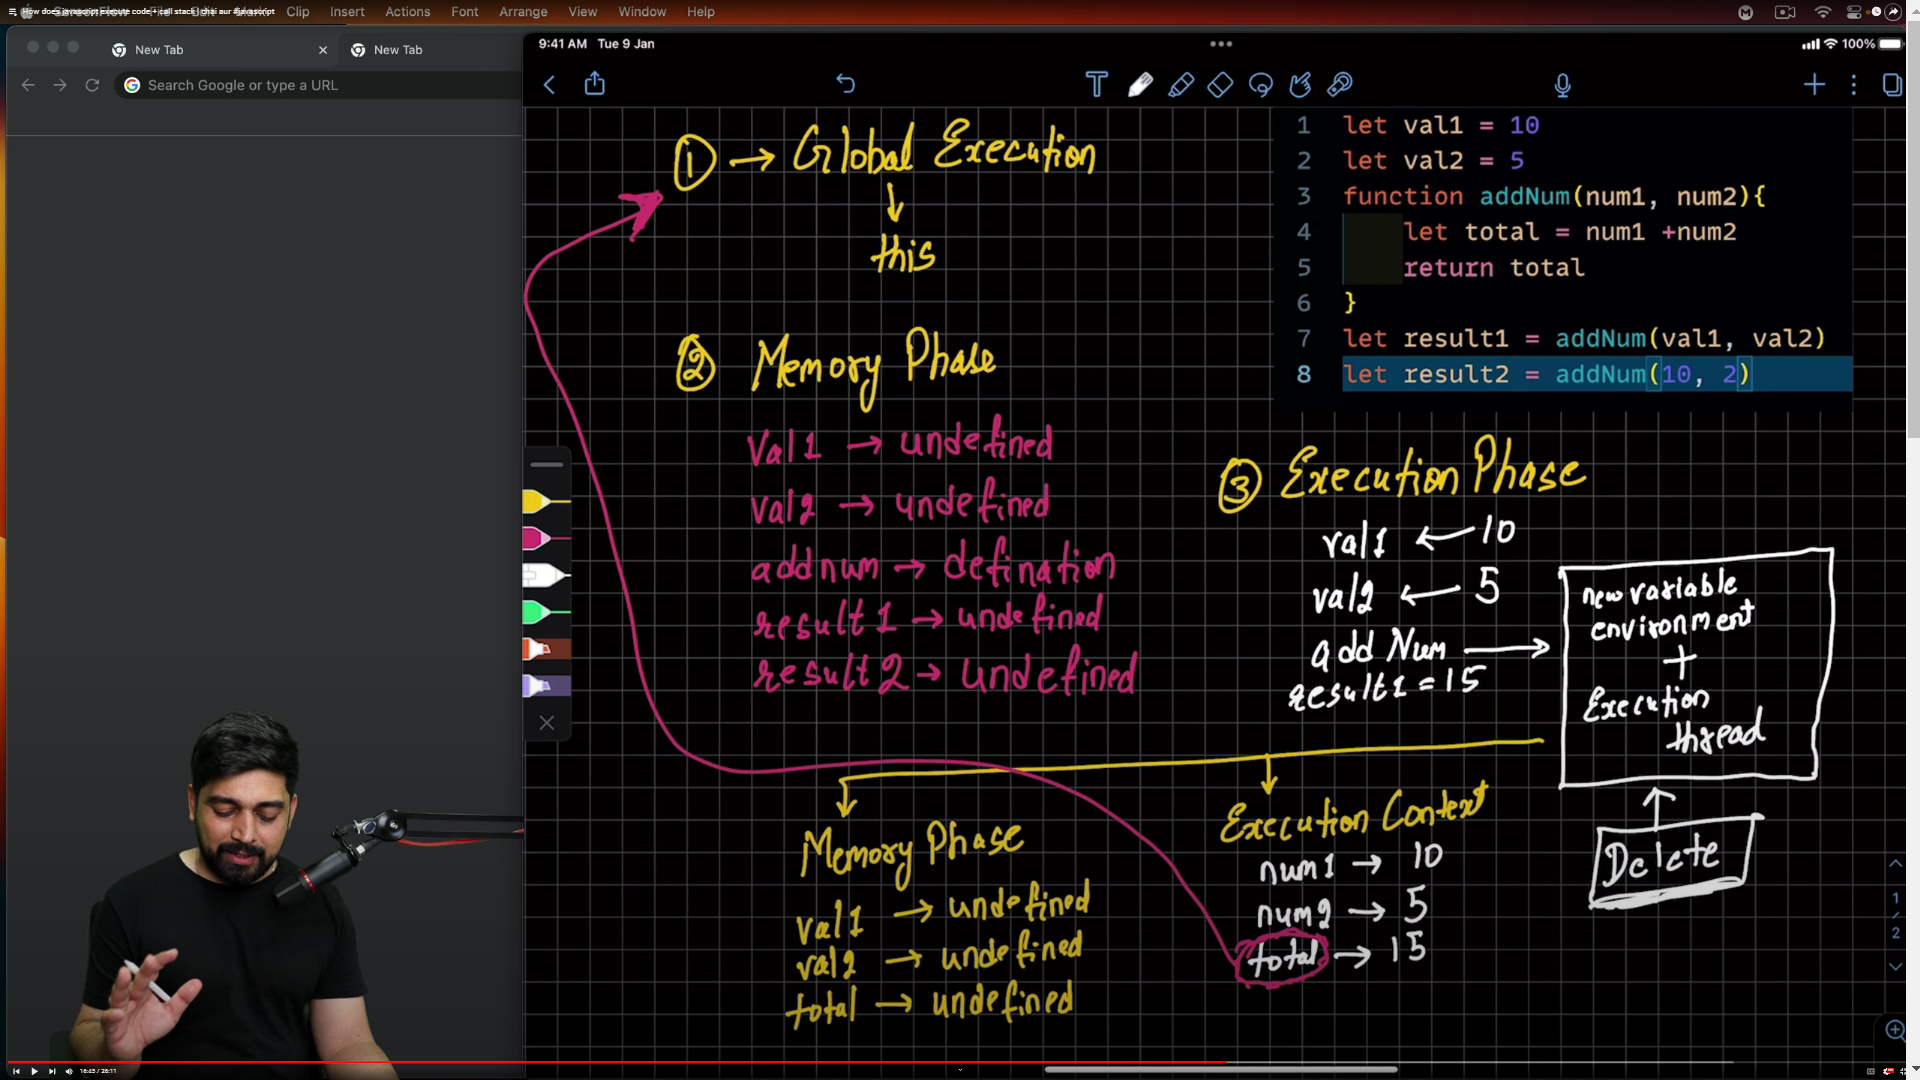 How does javascript execute code + call stack | chai aur #javascript
Clip Insert Actions Font Arrange View Window Help
New Tab
New Tab
Search Google or type a URL
9:41 AM Tue 9 Jan
100%
① → Global Execution
↓
this
② Memory Phase
Val1 → undefined
val2 → undefined
addnum → defination
result1 → undefined
result2 → undefined
1 let val1 = 10
2 let val2 = 5
3 function addNum(num1, num2){
4 let total = num1 +num2
5 return total
6 }
7 let result1 = addNum(val1, val2)
8 let result2 = addNum(10, 2)
③ Execution Phase
val1 ← 10
val2 ← 5
add Num →
result1 = 15
new variable
environment
+
Execution
thread
Delete
Memory Phase
val1 → undefined
val2 → undefined
total → undefined
Execution Context
num1 → 10
num2 → 5
total → 15
1
/
2
16:45 / 26:11